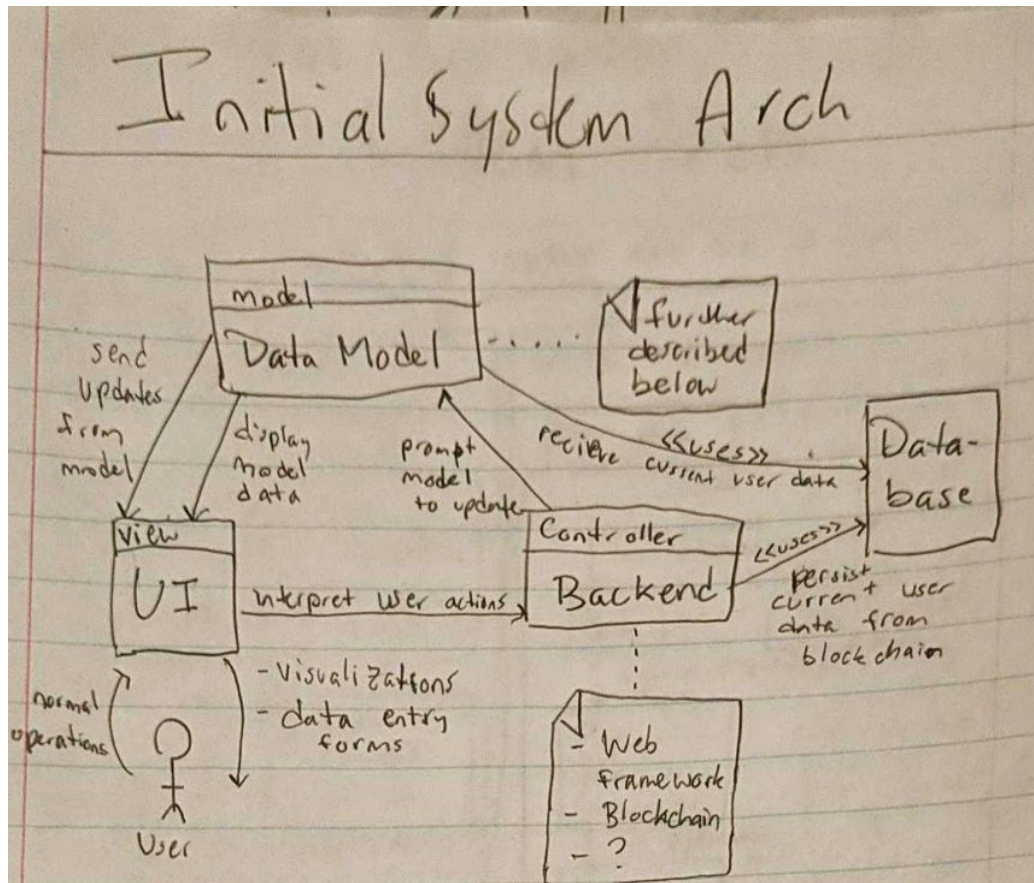 Initial System Arch
model
Data Model
further
described
below
send
updates
from
model
display
model
data
prompt
model
to update
<<uses>>
recieve current user data
Data-
base
view
UI
interpret user actions
Controller
Backend
<<uses>>
persist
current user
data from
blockchain
normal
operations
User
- Visualizations
- data entry
forms
- Web
framework
- Blockchain
- ?